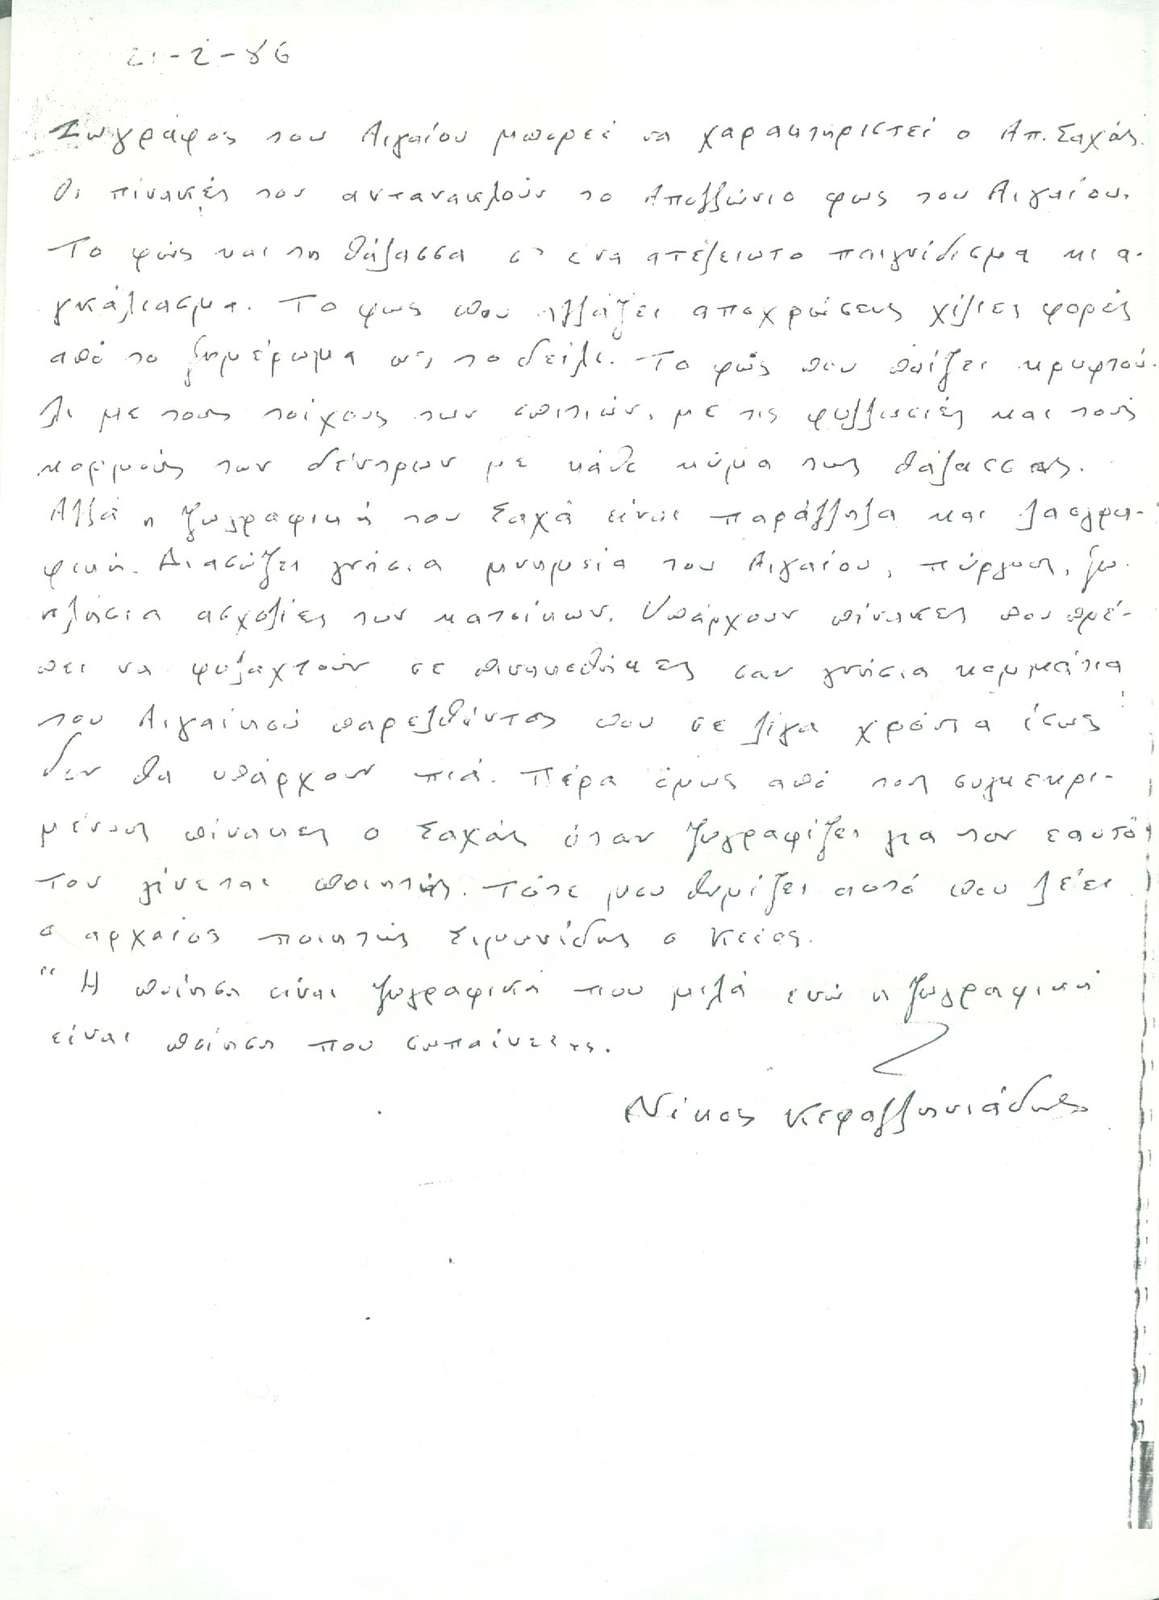 21-2-86
Ζωγράφος του Αιγαίου μπορεί να χαρακτηριστεί ο Απ. Σαχάς.
Οι πίνακές του αντανακλούν το Απολλώνιο φως του Αιγαίου.
Το φως και τη θάλασσα σ' ένα ατέλειωτο παιγνίδισμα κι α-
γκάλιασμα. Το φως που αλλάζει αποχρώσεις χίλιες φορές
από το ξημέρωμα ως το δείλι. Το φως που παίζει κρυφτού-
λι με τους τοίχους των σπιτιών, με τις φυλλωσιές και τους
κορμούς των δέντρων με κάθε κύμα της θάλασσας.
Αλλά η ζωγραφική του Σαχά είναι παράλληλα και λαογρα-
φική. Διασώζει γνήσια μνημεία του Αιγαίου, πύργους,
ασχολίες των κατοίκων. Υπάρχουν πίνακες που πρέ-
πει να φυλαχτούν σε πινακοθήκες σαν γνήσια κομμάτια
του Αιγαίικού παρελθόντος που σε λίγα χρόνια ίσως
δεν θα υπάρχουν πιά. Πέρα όμως από τους συγκεκρι-
μένους πίνακες ο Σαχάς όταν ζωγραφίζει για τον εαυτό
του γίνεται ποιητής. Τότε μου θυμίζει αυτό που λέει
ο αρχαίος ποιητής Σιμωνίδης ο Κείος.
"Η ποίηση είναι ζωγραφική που μιλά ενώ η ζωγραφική
είναι ποίηση που σωπαίνει".
Νίκος Κεφαλληνιάδης